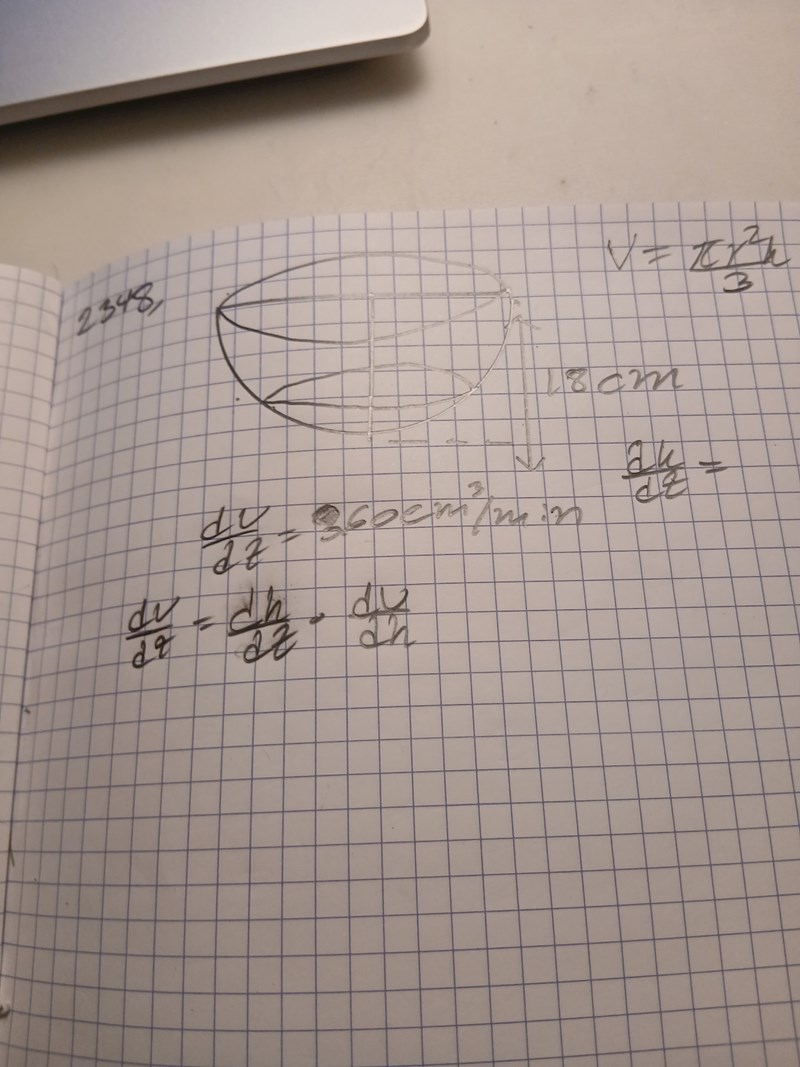 2348,
V = πr²h/3
18 cm
dh/dt =
dv/dt = 360 cm³/min
dv/dt = dh/dt · dv/dh